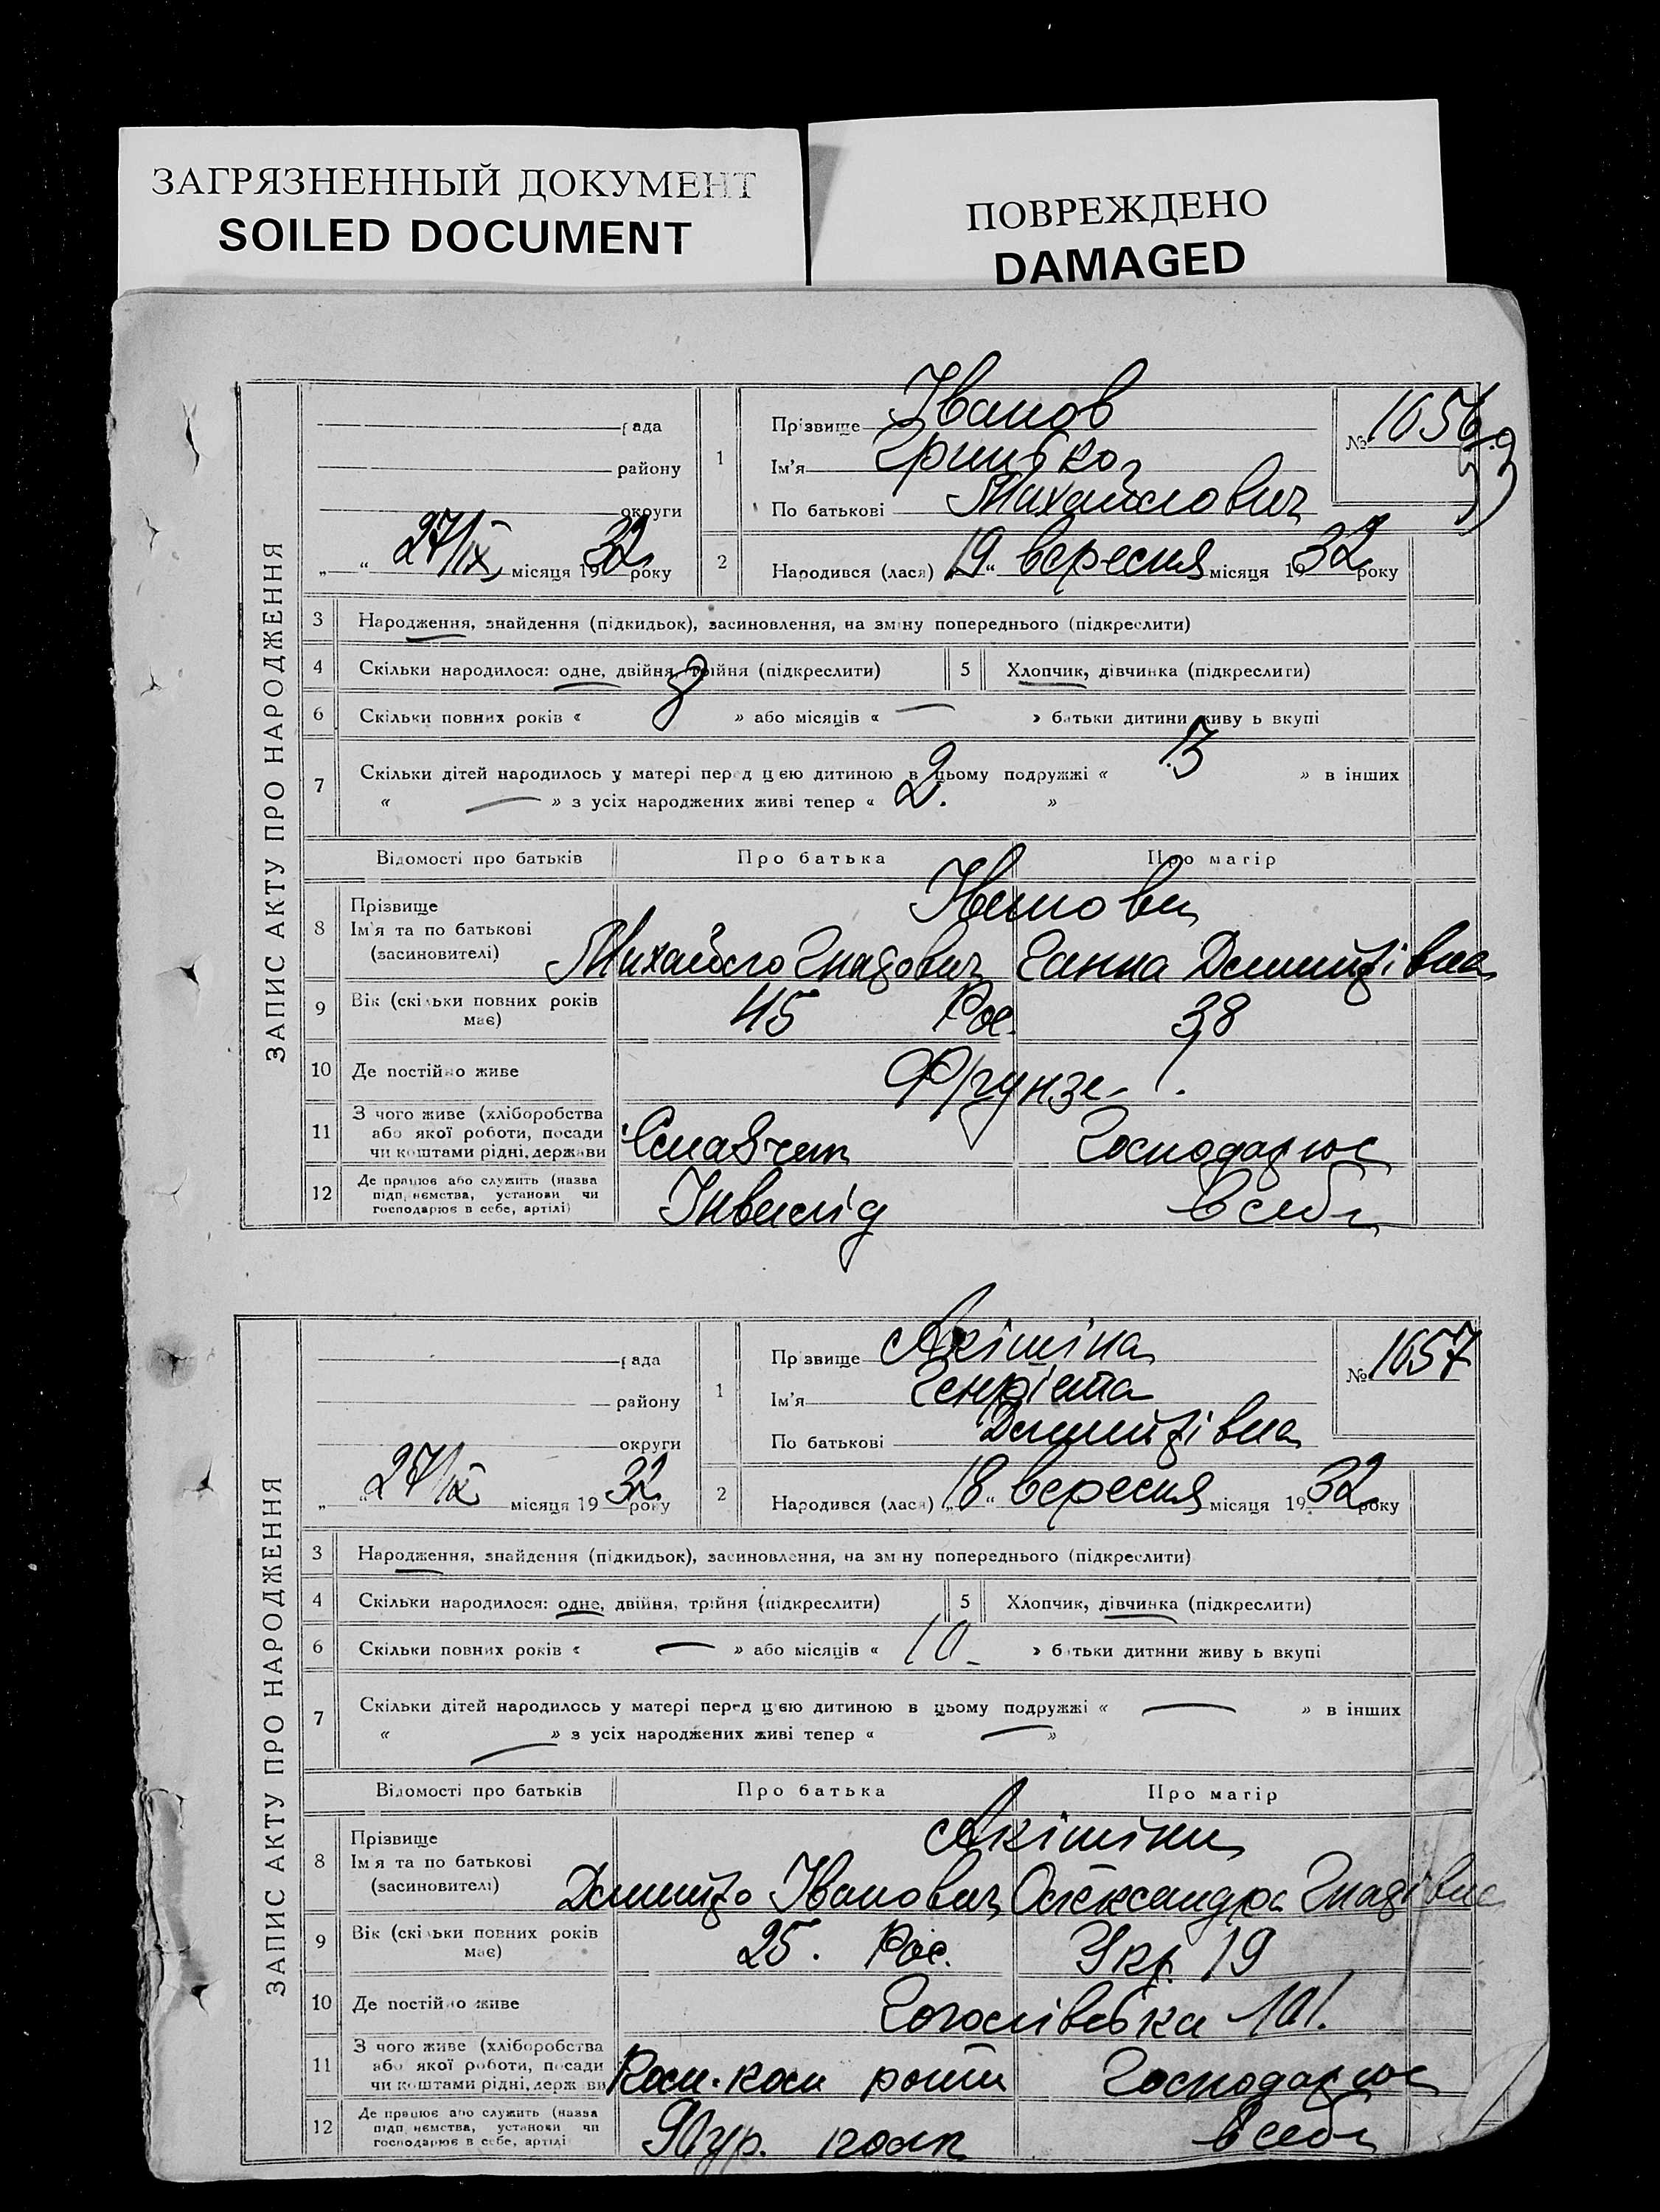 ЗАГРЯЗНЕННЫЙ ДОКУМЕНТ
SOILED DOCUMENT
ПОВРЕЖДЕНО
DAMAGED
ЗАПИС АКТУ ПРО НАРОДЖЕННЯ
рада
району
округи
„ “ 27/IX місяця 1932 року
1
Прізвище Іванов
Ім'я
По батькові Михайлович
№ 1656
2
Народився (лася) „19“ вересня місяця 1932 року
3 Народження, знайдення (підкидьок), засиновлення, на зміну попереднього (підкреслити)
4 Скільки народилося: одне, двійня, трійня (підкреслити) 5 Хлопчик, дівчинка (підкреслити)
6 Скільки повних років « 3 » або місяців « — » батьки дитини живуть вкупі
7 Скільки дітей народилось у матері перед цією дитиною в цьому подружжі « 3 » в інших
« — » з усіх народжених живі тепер « 2. »
Відомості про батьків Про батька Про матір
8 Прізвище
Ім'я та по батькові
(засиновителі)
Іванови
Михайло Гнатович Ганна Дмитрівна
9 Вік (скільки повних років має) 45 Рос. 38
10 Де постійно живе Фрунзе
11 З чого живе (хліборобства
або якої роботи, посади
чи коштами рідні, держави
Господарює
12 Де працює або служить (назва
підприємства, установи чи
господарює в себе, артілі)
Інвалід в себе
ЗАПИС АКТУ ПРО НАРОДЖЕННЯ
рада
району
округи
„ “ 27/IX місяця 1932 року
1
Прізвище Акішіна
Ім'я Генрієта
По батькові Дмитрівна
№ 1657
2
Народився (лася) „18“ вересня місяця 1932 року
3 Народження, знайдення (підкидьок), засиновлення, на зміну попереднього (підкреслити)
4 Скільки народилося: одне, двійня, трійня (підкреслити) 5 Хлопчик, дівчинка (підкреслити)
6 Скільки повних років « — » або місяців « 10 » батьки дитини живуть вкупі
7 Скільки дітей народилось у матері перед цією дитиною в цьому подружжі « — » в інших
« — » з усіх народжених живі тепер « — »
Відомості про батьків Про батька Про матір
8 Прізвище
Ім'я та по батькові
(засиновителі)
Акішіни
Дмитро Іванович Олександра Гнатівна
9 Вік (скільки повних років має) 25. Рос. Укр. 19
10 Де постійно живе Гоголівська 101.
11 З чого живе (хліборобства
або якої роботи, посади
чи коштами рідні, держави
роти Господарює
12 Де працює або служить (назва
підприємства, установи чи
господарює в себе, артілі
полк в себе